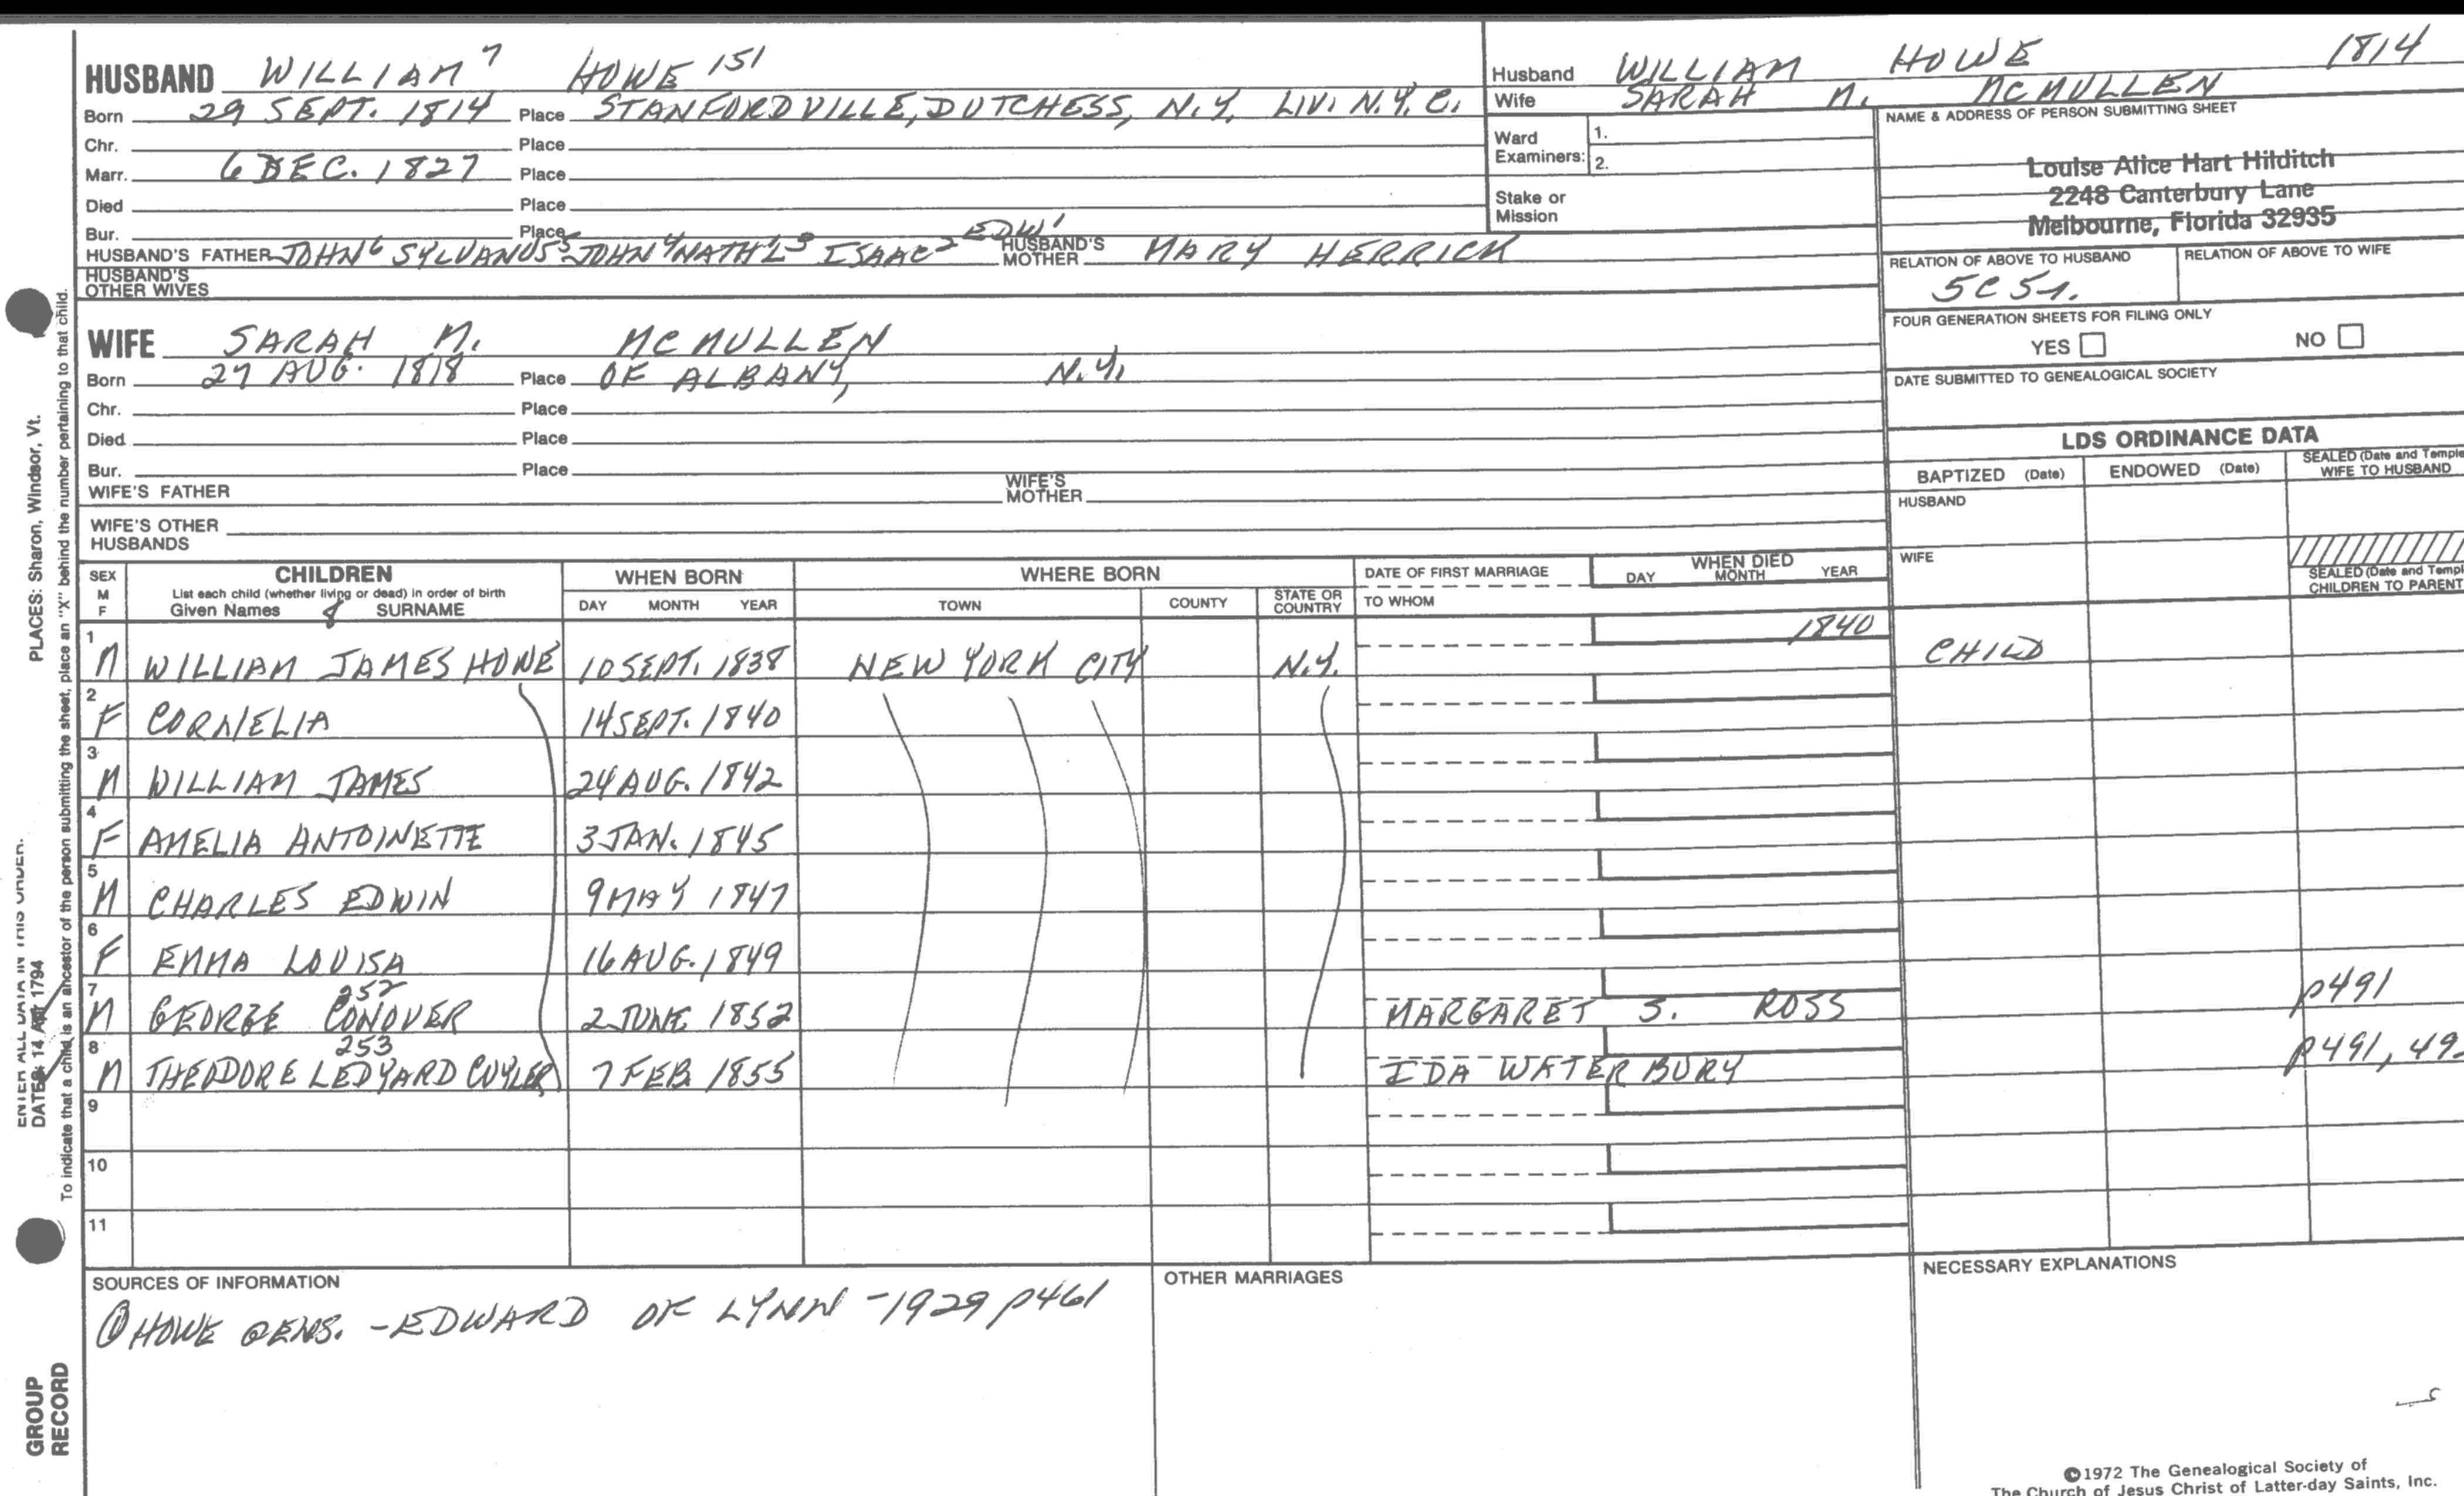 HUSBAND WILLIAM 7 HOWE 151
Born 29 SEPT. 1814 Place STANFORDVILLE, DUTCHESS, N.Y. LIV. N.Y.C.
Chr. Place
Marr. 6 DEC. 1827 Place
Died Place
Bur. Place
HUSBAND'S FATHER JOHN 6 SYLVANUS 5 JOHN 4 NATH'L 3 ISAAC 2 EDW 1 HUSBAND'S MOTHER MARY HERRICK
HUSBAND'S OTHER WIVES
WIFE SARAH M. MCMULLEN
Born 27 AUG. 1818 Place OF ALBANY, N.Y.
Chr. Place
Died Place
Bur. Place
WIFE'S FATHER WIFE'S MOTHER
WIFE'S OTHER HUSBANDS
Husband WILLIAM HOWE 1814
Wife SARAH M. MCMULLEN
Ward Examiners: 1.
2.
Stake or Mission
NAME & ADDRESS OF PERSON SUBMITTING SHEET
Louise Alice Hart Hilditch
2248 Canterbury Lane
Melbourne, Florida 32935
RELATION OF ABOVE TO HUSBAND RELATION OF ABOVE TO WIFE
FOUR GENERATION SHEETS FOR FILING ONLY
YES NO
DATE SUBMITTED TO GENEALOGICAL SOCIETY
LDS ORDINANCE DATA
BAPTIZED (Date) ENDOWED (Date) SEALED (Date and Temple WIFE TO HUSBAND
HUSBAND
WIFE
SEALED (Date and Templ
CHILDREN TO PARENT
SEX M F CHILDREN WHEN BORN WHERE BORN DATE OF FIRST MARRIAGE WHEN DIED
List each child (whether living or dead) in order of birth
Given Names 8 SURNAME DAY MONTH YEAR TOWN COUNTY STATE OR COUNTRY TO WHOM DAY MONTH YEAR
1 M WILLIAM JAMES HOWE 10 SEPT. 1838 NEW YORK CITY N.Y. 1840 CHILD
2 F CORNELIA 14 SEPT. 1840
3 M WILLIAM JAMES 24 AUG. 1842
4 F AMELIA ANTOINETTE 3 JAN. 1845
5 M CHARLES EDWIN 9 MAY 1847
6 F EMMA LOUISA 16 AUG. 1849
7 M GEORGE CONOVER 252 2 JUNE 1852 MARGARET S. ROSS p491
8 M THEODORE LEDYARD CUYLER 253 7 FEB. 1855 IDA WATERBURY p491, 49
9
10
11
SOURCES OF INFORMATION
① HOWE GENS. - EDWARD OF LYNN - 1929 p461
OTHER MARRIAGES
NECESSARY EXPLANATIONS
©1972 The Genealogical Society of
The Church of Jesus Christ of Latter-day Saints, Inc.
PLACES: Sharon, Windsor, Vt.
ENTER ALL DATA IN THIS ORDER.
DATES: 14 Apr 1794
To indicate that a child is an ancestor of the person submitting the sheet, place an "X" behind the number pertaining to that child.
GROUP
RECORD